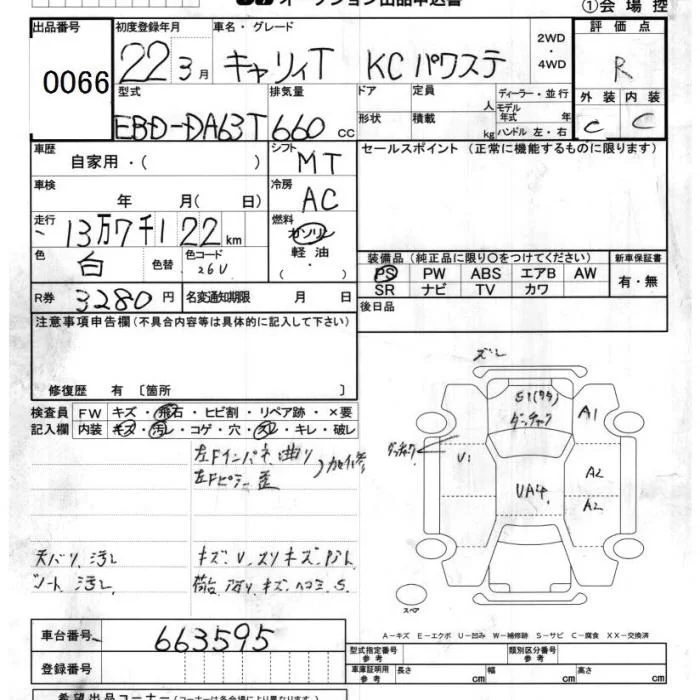 オークション出品申込書
①会場控
出品番号 初度登録年月 車名・グレード 評価点
0066 22 3月 キャリィT KC パワステ 2WD・4WD R
型式 排気量 ドア 定員 人 ディーラー・並行 外装 内装
EBD-DA63T 660 cc 形状 積載 kg モデル年式 年 ハンドル 左・右 C C
車歴 自家用・( ) シフト MT セールスポイント (正常に機能するものに限ります)
車検 年 月( 日) 冷房 AC
走行 13万7千1 22 km 燃料 ガソリン・軽油・( )
色 白 色替 色コード 26U
装備品 (純正品に限り○をつけてください) 新車保証書
PS PW ABS エアB AW 有・無
SR ナビ TV カワ
R券 3280円 名変通知期限 月 日 後日品
注意事項申告欄 (不具合内容等は具体的に記入して下さい)
修復歴 有 [箇所 ]
検査員 FW キズ・飛石・ヒビ割・リペア跡・×要
記入欄 内装 キズ・汚レ・コゲ・穴・スレ・キレ・破レ
左Fインパネ曲り
左Fピラー歪
天バリ汚レ
シート汚レ
ズレ
S1(ワタ)
A1
V1
A2
UA4
A2
スペア
A-キズ E-エクボ U-凹み W-補修跡 S-サビ C-腐食 XX-交換済
車台番号 663595
登録番号
型式指定番号 参考 類別区分番号 参考
車庫証明用 参考 長さ cm 幅 cm 高さ cm
希望出品コーナー